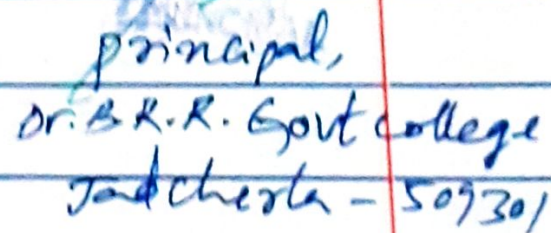 principal,
Dr. B.R.R. Govt college
Jadcherla - 509301